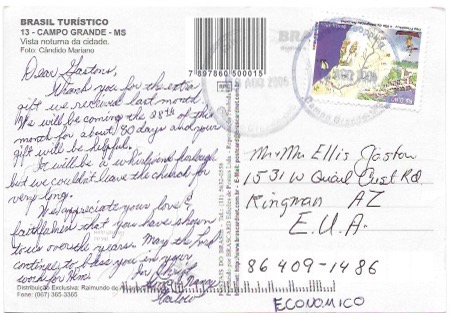 BRASIL TURÍSTICO
13 - CAMPO GRANDE - MS
Vista noturna da cidade.
Foto: Cândido Mariano
Dear Gastons,
Thank you for the extra
gift we received last month.
We will be coming the 28th of this
month for about 30 days and your
gift will be helpful.
It will be a whirlwind furlough
but we couldn't leave the church for
very long.
We appreciate your love &
faithfulness that you have shown
to us over the years. May the Lord
continue to bless you in your
work for Him.
In Christ,
Distribuição Exclusiva: Raimundo de
Fone: (067) 365-3365
7 897860 500015
BRASCARD
AGO 2005
Mr & Mrs Ellis Gaston
1531 W Quail Crest Rd
Kingman AZ
E.U.A.
86409-1486
ECONOMICO